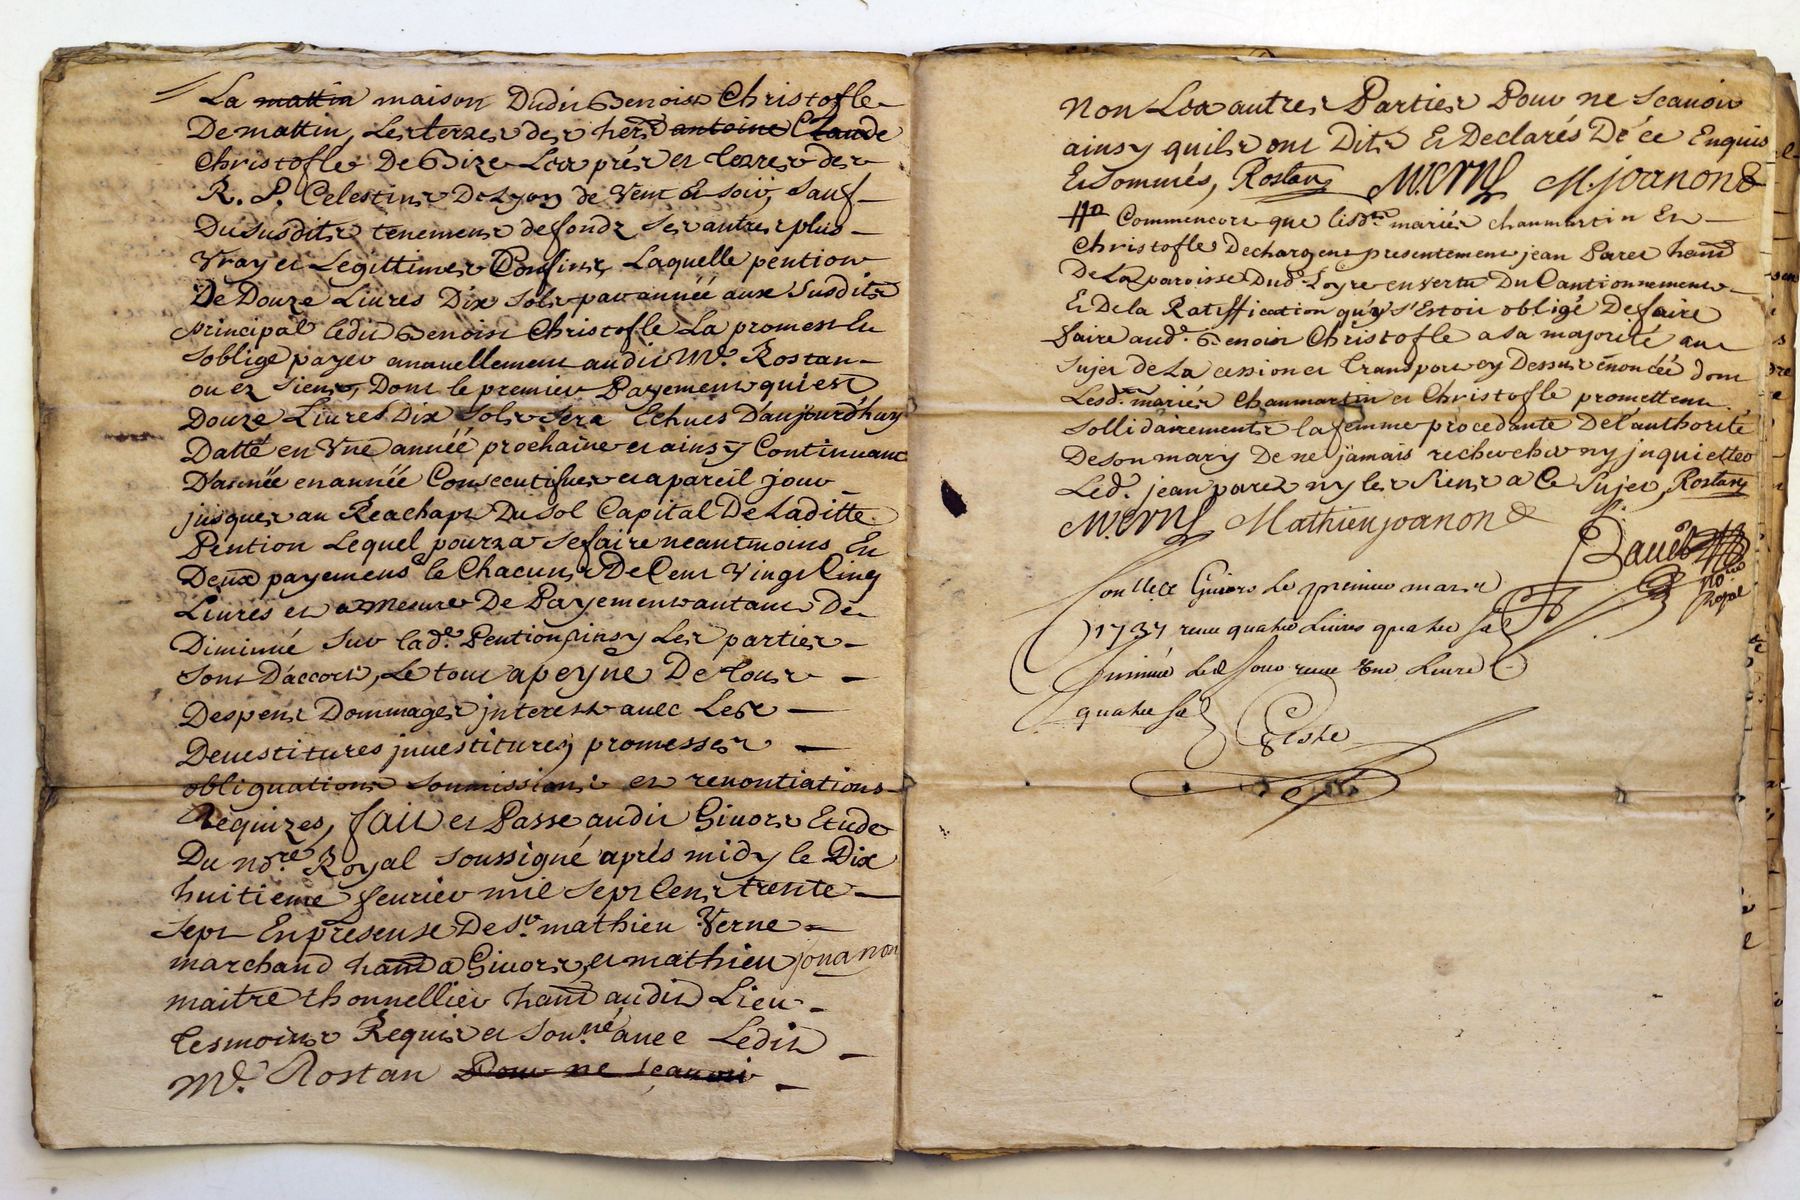 La mattin maison Dudit Benoist Christofle
De mattin, Les terres des hers antoine Claude
Christofle De Bize Les prés et terres des
R. P. Celestins De Lyon de Vent Et soir, Sauf
Du susdits tenement de fondz Ses autres plus
Vray et Legittimes Confins, Laquelle pention
De Douze Livres Dix Sols par année aux susdits
principal ledit Benoist Christofle La promest Et
soblige payer annuellement audit Mr. Rostan
ou ez siens, Dont le premier Payement qui est
Douze Livres Dix Sols Sera Echues D'aujourd'huy
Datté en Une année prochaine et ainsy Continuant
D'année en année Consecutifves et a pareil jour
jusques au Reachapt Du Sol Capital De Laditte
Pention Lequel pourra Se faire neantmoins En
Deux payements le Chacuns De Cent Vingt Cinq
Livres et a Mesure De Payement autant De
Diminué Sur lade. Pention, ainsy Les parties
Sont D'accort, Le tout a peyne De tous
Despens Dommages jnterests avec Les
Devestitures jnvestitures, promesses
obliguations soumissions et renontiations
Requizes, fait et Passé audit Givors Etude
Du nore. Royal soussigné aprés midy le Dix
huitieme fevrier mil sept Cent trente
sept En presense De Sr. mathieu Verne
marchand hant a Givors, et mathieu jouanon
maitre thonnellier hant audit Lieu
tesmoins Requis et Sousné. avec Ledit
Mr. Rostan Pour ne sçavoir
non Les autres Parties Pour ne Scavoir
ainsy quils ont Dits Et Declarés De ce Enquis
Et Sommés, Rostan M Verne M. joanon
Commencore que lesds. mariés chaumartin Et
Christofle Dechargent presentement jean Paret hant
De La paroisse Dud. Loyre en vertu Du Cautionnement
Et De la Ratiffication qu'y s'Estoit obligé De faire
faire aud. Benoist Christofle a sa majorité au
sujet de La cession et transport cy Dessus énoncée dont
Lesd. mariés Chaumartin et Christofle promettent
sollidairements la femme procedante De l'authorité
De son mary De ne jamais rechercher ny jnquietter
Led. jean paret ny les Siens a Ce Sujet, Rostan
M Verne Mathieu joanon
nore royal
Conlle. a Givors le premier mars
1737 receu quatre Livres quatre s
jnsinué led. jour receu Une Livre
quatre s